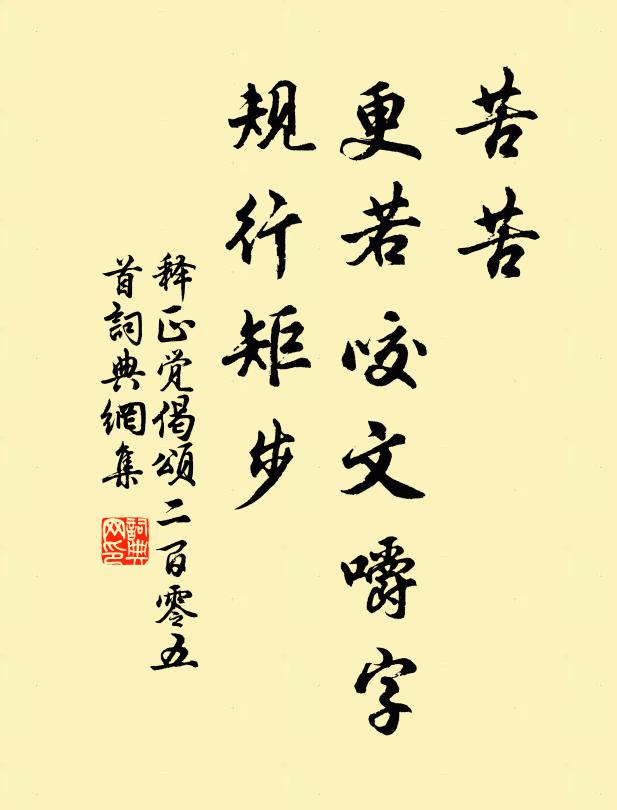 苦苦
更若咬文嚼字
規行矩步
释正觉偈頌二百零五
首詞典網集
詞典
网印